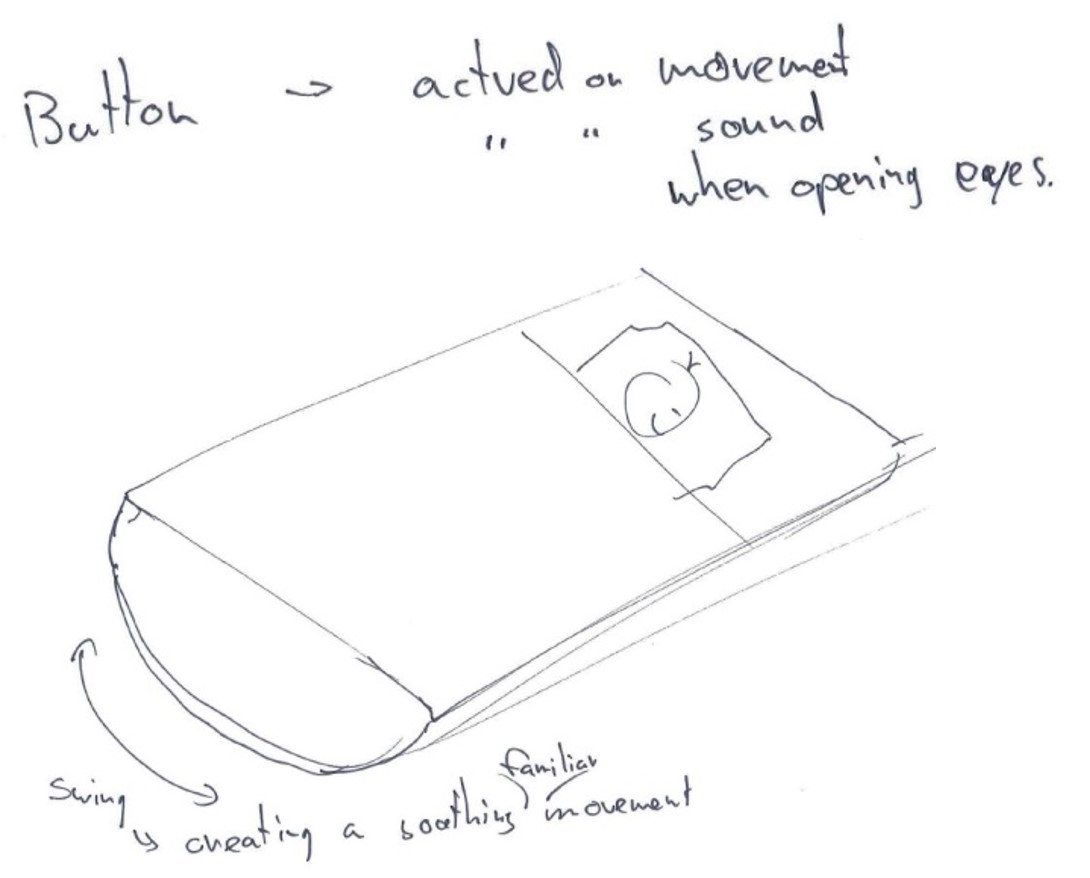 Button → actved on movement
" " sound
when opening eyes.
familiar
Swing
↳ creating a soothing movement